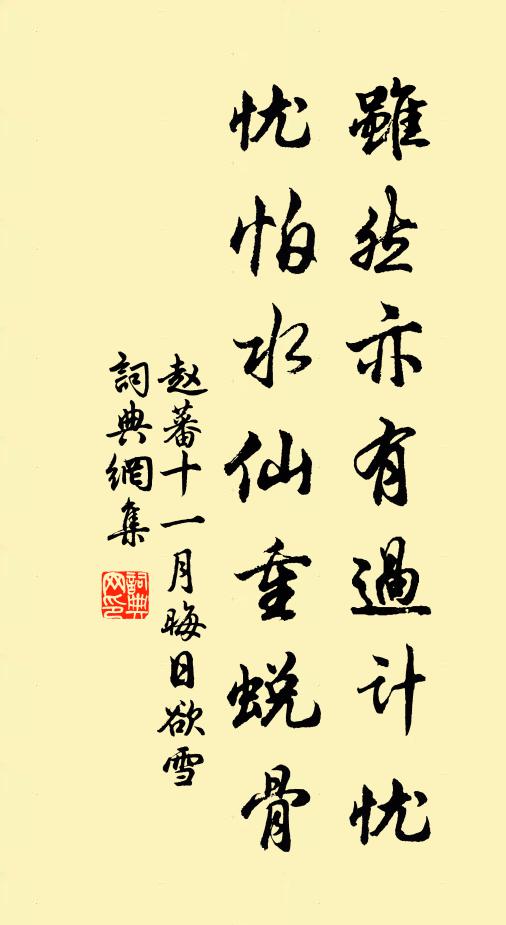 雖然亦有過计忧
忧怕水仙重蜕骨
赵蕃十一月晦日欲雪
詞典網集
詞典网印